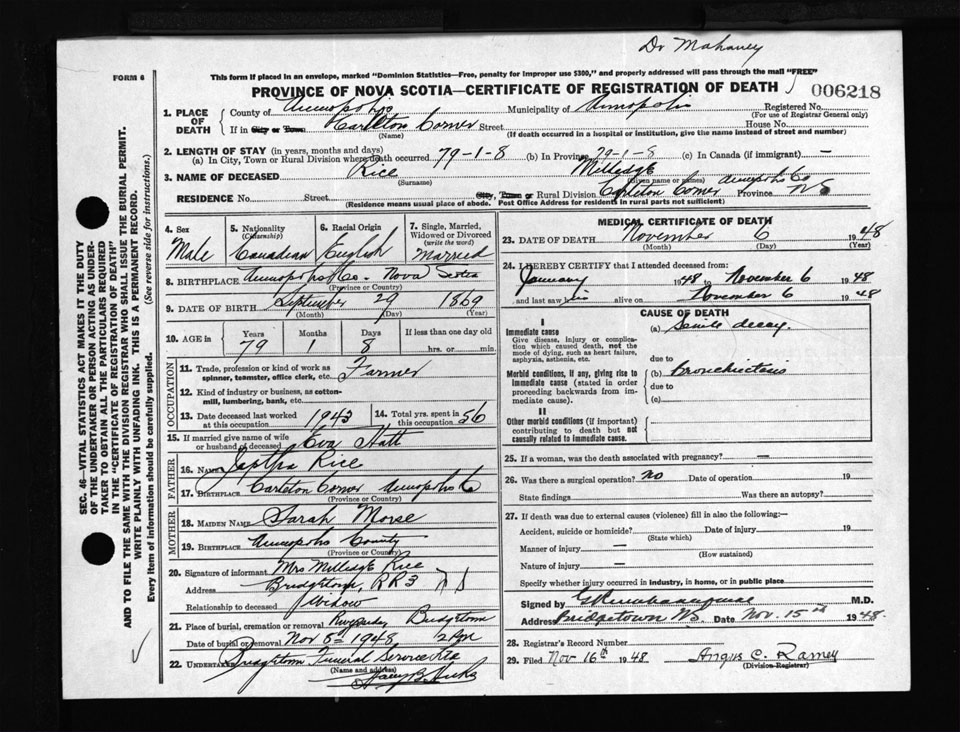 Dr Mahaney
FORM 6
This form if placed in an envelope, marked "Dominion Statistics—Free, penalty for improper use $300," and properly addressed will pass through the mail "FREE"
PROVINCE OF NOVA SCOTIA—CERTIFICATE OF REGISTRATION OF DEATH
006218
1. PLACE OF DEATH
County of Annapolis Municipality of Annapolis Registered No.
(For use of Registrar General only)
If in City or Town Carleton Corner Street House No.
(Name) (If death occurred in a hospital or institution, give the name instead of street and number)
2. LENGTH OF STAY (in years, months and days)
(a) In City, Town or Rural Division where death occurred 79-1-8 (b) In Province 79-1-8 (c) In Canada (if immigrant) —
3. NAME OF DECEASED Rice Milledge
(Surname) (Given name or names)
RESIDENCE No. Street City, Town or Rural Division Carleton Corner Annapolis Co Province NS
(Residence means usual place of abode. Post Office Address for residents in rural parts not sufficient)
4. Sex
Male
5. Nationality
(Citizenship)
Canadian
6. Racial Origin
English
7. Single, Married, Widowed or Divorced
(write the word)
Married
8. BIRTHPLACE Annapolis Co. Nova Scotia
(Province or Country)
9. DATE OF BIRTH September 29 1869
(Month) (Day) (Year)
10. AGE in
Years Months Days If less than one day old
79 1 8 hrs. or min.
OCCUPATION
11. Trade, profession or kind of work as spinner, teamster, office clerk, etc. Farmer
12. Kind of industry or business, as cotton-mill, lumbering, bank, etc.
13. Date deceased last worked at this occupation 1943
14. Total yrs. spent in this occupation 56
15. If married give name of wife or husband of deceased Eva Hatt
FATHER
16. NAME Japtha Rice
17. BIRTHPLACE Carleton Corner Annapolis Co
(Province or Country)
MOTHER
18. MAIDEN NAME Sarah Morse
19. BIRTHPLACE Annapolis County
(Province or Country)
20. Signature of informant Mrs Milledge Rice
Address Bridgetown, RR3 NS
Relationship to deceased Widow
21. Place of burial, cremation or removal Riverside Bridgetown
Date of burial or removal Nov 8th 1948 2 PM
22. UNDERTAKER Bridgetown Funeral Service Ltd
(Name and address)
MEDICAL CERTIFICATE OF DEATH
23. DATE OF DEATH November 6 1948
(Month) (Day) (Year)
24. I HEREBY CERTIFY that I attended deceased from:
January 1948 to November 6 1948
and last saw him alive on November 6 1948
CAUSE OF DEATH
I
Immediate cause
Give disease, injury or complication which caused death, not the mode of dying, such as heart failure, asphyxia, asthenia, etc.
(a) Senile decay.
due to
Morbid conditions, if any, giving rise to immediate cause (stated in order proceeding backwards from immediate cause).
(b) Bronchiectasis
due to
(c)
II
Other morbid conditions (if important) contributing to death but not causally related to immediate cause.
25. If a woman, was the death associated with pregnancy? —
26. Was there a surgical operation? no Date of operation 19
State findings Was there an autopsy?
27. If death was due to external causes (violence) fill in also the following:—
Accident, suicide or homicide? Date of injury 19
(State which)
Manner of injury —
(How sustained)
Nature of injury —
Specify whether injury occurred in industry, in home, or in public place
Signed by M.D.
Address Bridgetown NS. Date Nov. 15th 1948.
28. Registrar's Record Number
29. Filed Nov 16th 1948 Angus C. Ramey
(Division Registrar)
SEC. 46—VITAL STATISTICS ACT MAKES IT THE DUTY
OF THE UNDERTAKER OR PERSON ACTING AS UNDER-
TAKER TO OBTAIN ALL THE PARTICULARS REQUIRED
IN THE "CERTIFICATE OF REGISTRATION OF DEATH"
AND TO FILE THE SAME WITH THE DIVISION REGISTRAR WHO SHALL ISSUE THE BURIAL PERMIT.
WRITE PLAINLY WITH UNFADING INK. THIS IS A PERMANENT RECORD.
Every item of information should be carefully supplied. (See reverse side for instructions.)